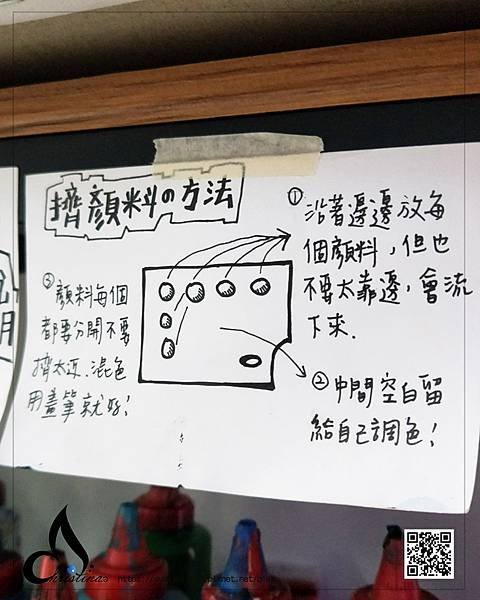 擠顏料の方法
① 沿著邊邊放每
個顏料，但也
不要太靠邊，會流
下來.
② 中間空白留
給自己調色！
③ 顏料每個
都要分開不要
擠太近.混色
用畫筆就好！
明
Christina